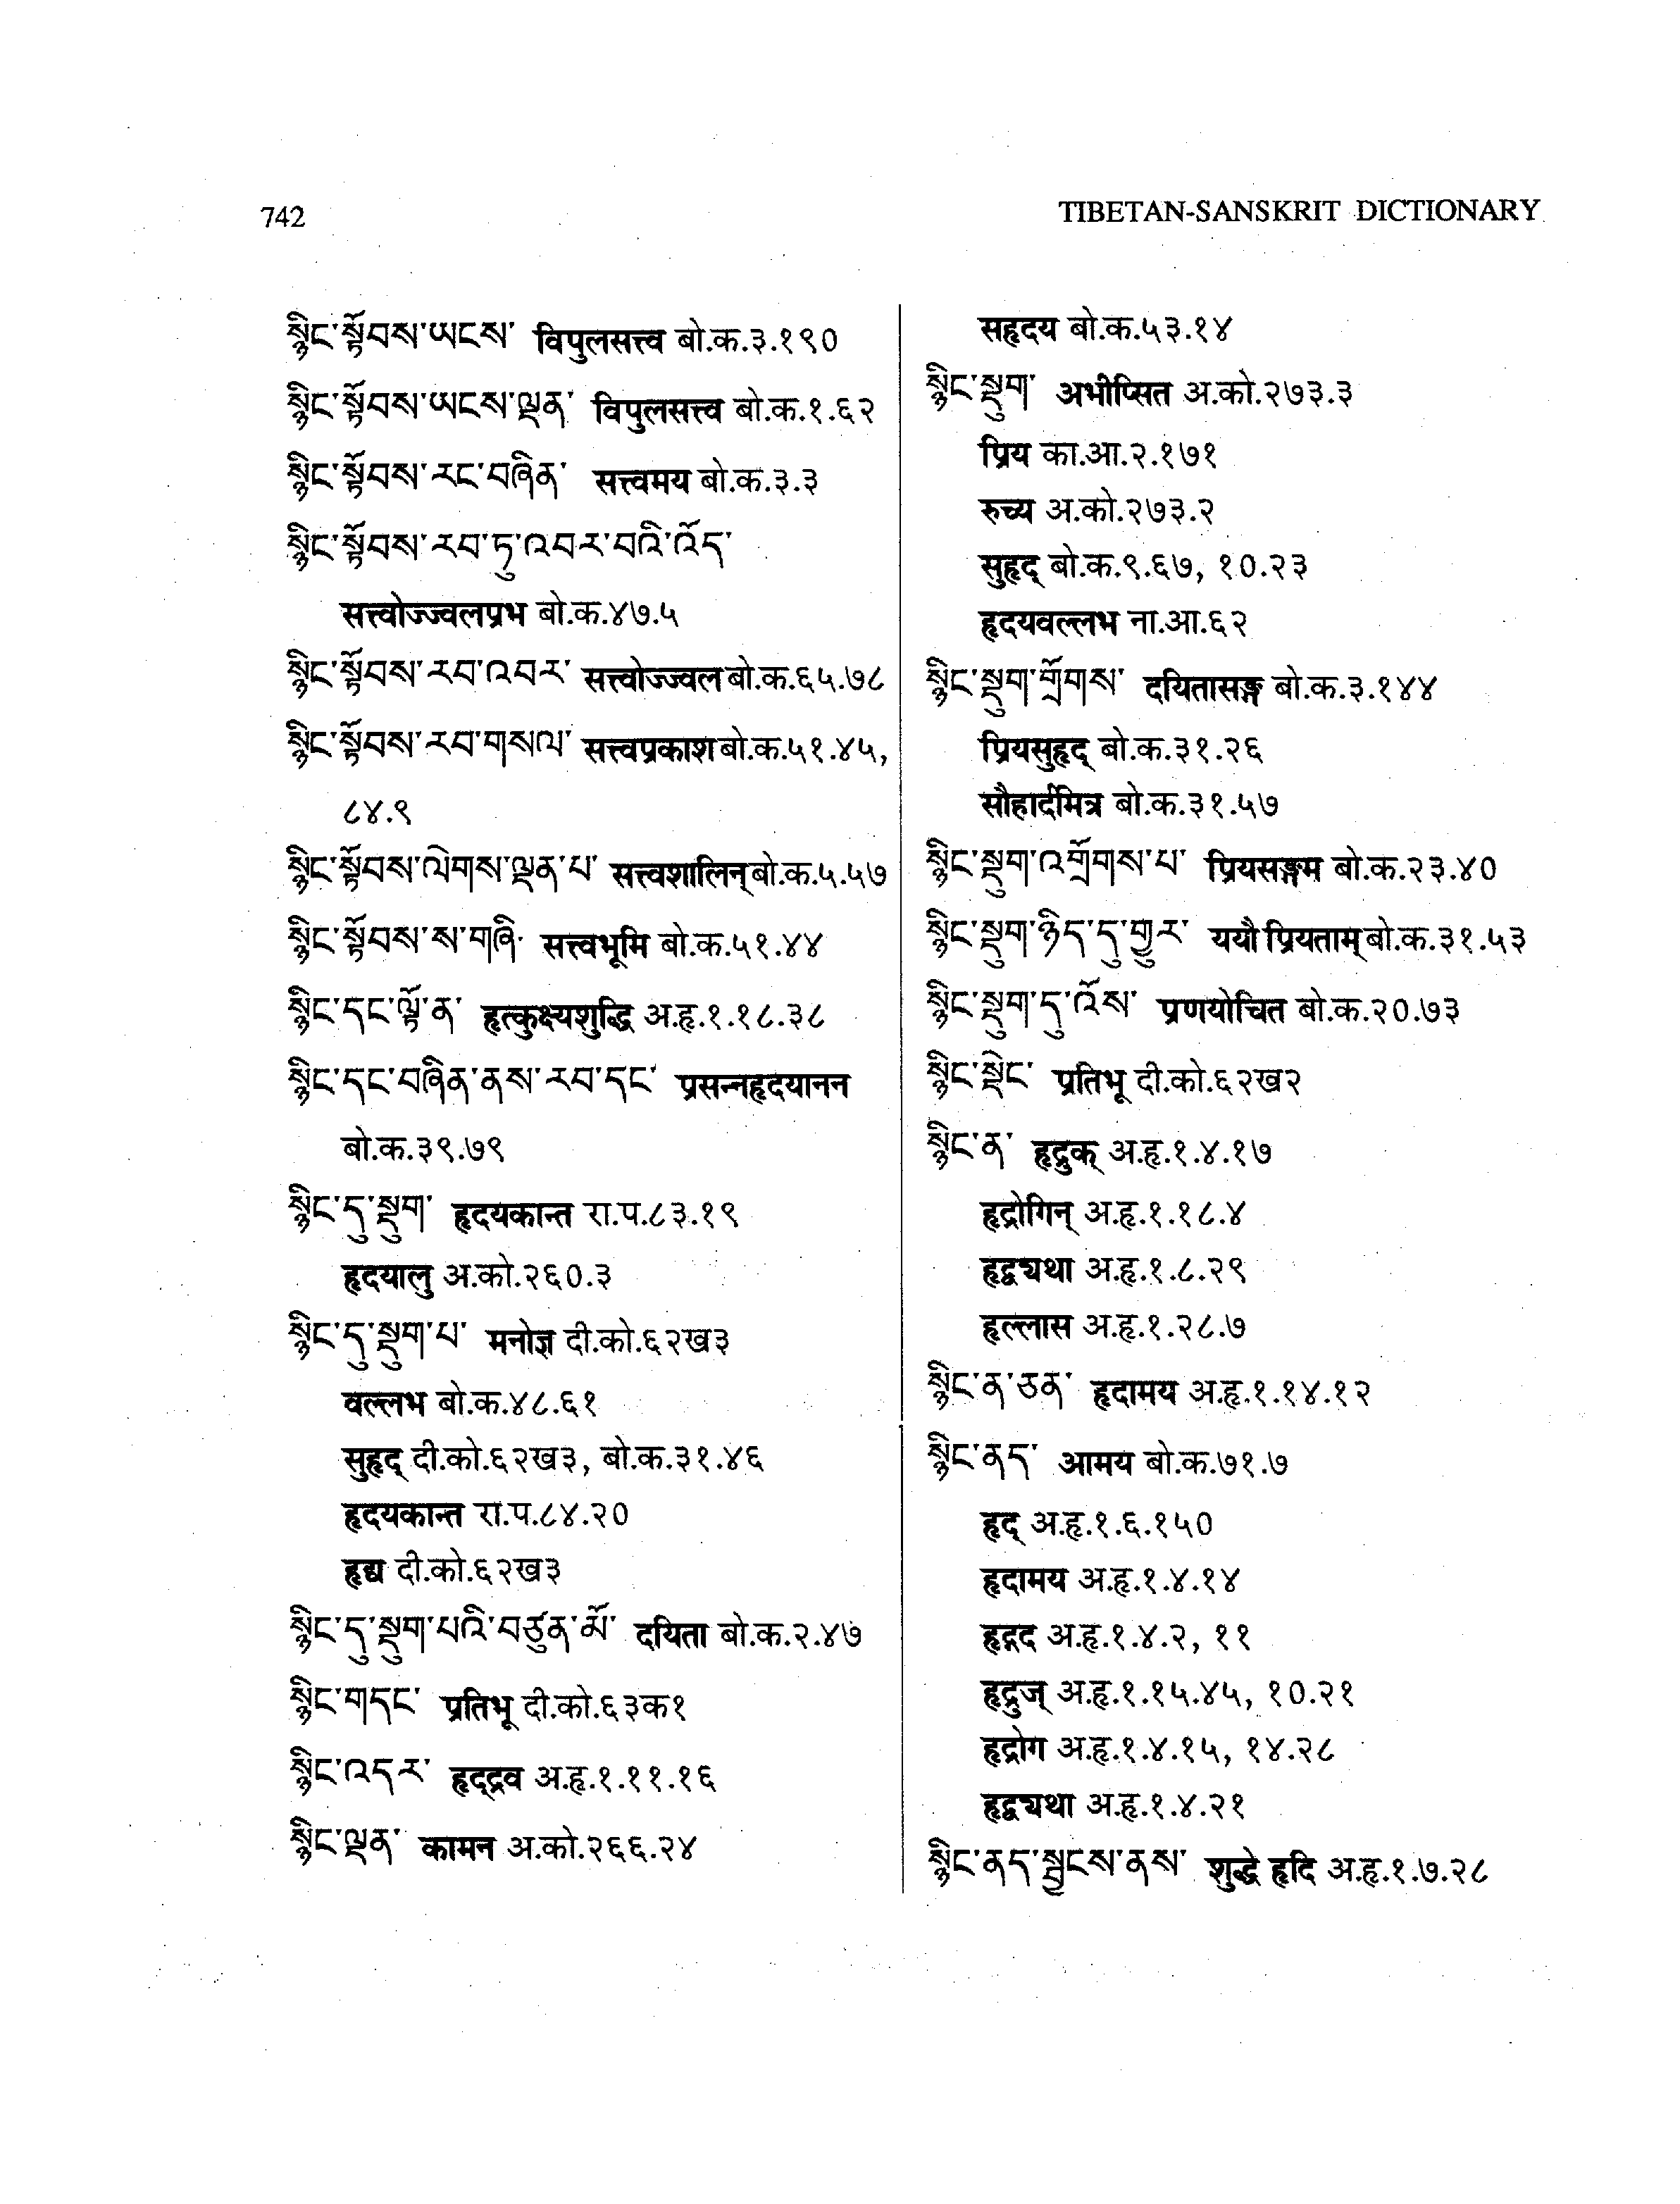 742
TIBETAN-SANSKRIT DICTIONARY
སྙིང་སྟོབས་ཡངས་ विपुलसत्त्व बो.क.३.१९०
སྙིང་སྟོབས་ཡངས་ལྡན་ विपुलसत्त्व बो.क.१.६२
སྙིང་སྟོབས་རང་བཞིན་ सत्त्वमय बो.क.३.३
སྙིང་སྟོབས་རབ་ཏུ་འབར་བའི་འོད་
सत्त्वोज्ज्वलप्रभ बो.क.४७.५
སྙིང་སྟོབས་རབ་འབར་ सत्त्वोज्ज्वल बो.क.६५.७८
སྙིང་སྟོབས་རབ་གསལ་ सत्त्वप्रकाश बो.क.५१.४५,
८४.९
སྙིང་སྟོབས་ལེགས་ལྡན་པ་ सत्त्वशालिन् बो.क.५.५७
སྙིང་སྟོབས་ས་གཞི་ सत्त्वभूमि बो.क.५१.४४
སྙིང་དང་ལྟོ་ན་ हृत्कुक्ष्यशुद्धि अ.हृ.१.१८.३८
སྙིང་དང་བཞིན་ནས་རབ་དང་ प्रसन्नहृदयानन
बो.क.३९.७९
སྙིང་དུ་སྡུག་ हृदयकान्त रा.प.८३.१९
हृदयालु अ.को.२६०.३
སྙིང་དུ་སྡུག་པ་ मनोज्ञ दी.को.६२ख३
वल्लभ बो.क.४८.६१
सुहृद् दी.को.६२ख३, बो.क.३१.४६
हृदयकान्त रा.प.८४.२०
हृद्य दी.को.६२ख३
སྙིང་དུ་སྡུག་པའི་བཙུན་མོ་ दयिता बो.क.२.४७
སྙིང་གདང་ प्रतिभू दी.को.६३क१
སྙིང་འདར་ हृद्द्रव अ.हृ.१.११.१६
སྙིང་ལྡན་ कामन अ.को.२६६.२४
सहृदय बो.क.५३.१४
སྙིང་སྡུག་ अभीप्सित अ.को.२७३.३
प्रिय का.आ.२.१७१
रुच्य अ.को.२७३.२
सुहृद् बो.क.९.६७, १०.२३
हृदयवल्लभ ना.आ.६२
སྙིང་སྡུག་གྲོགས་ दयितासङ्ग बो.क.३.१४४
प्रियसुहृद् बो.क.३१.२६
सौहार्दमित्र बो.क.३१.५७
སྙིང་སྡུག་འགྲོགས་པ་ प्रियसङ्गम बो.क.२३.४०
སྙིང་སྡུག་ཉིད་དུ་གྱུར་ ययौ प्रियताम् बो.क.३१.५३
སྙིང་སྡུག་དུ་འོས་ प्रणयोचित बो.क.२०.७३
སྙིང་སྡེང་ प्रतिभू दी.को.६२ख२
སྙིང་ན་ हृद्रुक् अ.हृ.१.४.१७
हृद्रोगिन् अ.हृ.१.१८.४
हृद्व्यथा अ.हृ.१.८.२९
हृल्लास अ.हृ.१.२८.७
སྙིང་ན་ཅན་ हृदामय अ.हृ.१.१४.१२
སྙིང་ནད་ आमय बो.क.७१.७
हृद् अ.हृ.१.६.१५०
हृदामय अ.हृ.१.४.१४
हृद्गद अ.हृ.१.४.२, ११
हृद्रुज् अ.हृ.१.१५.४५, १०.२१
हृद्रोग अ.हृ.१.४.१५, १४.२८
हृद्व्यथा अ.हृ.१.४.२१
སྙིང་ནད་སྦྱངས་ནས་ शुद्धे हृदि अ.हृ.१.७.२८